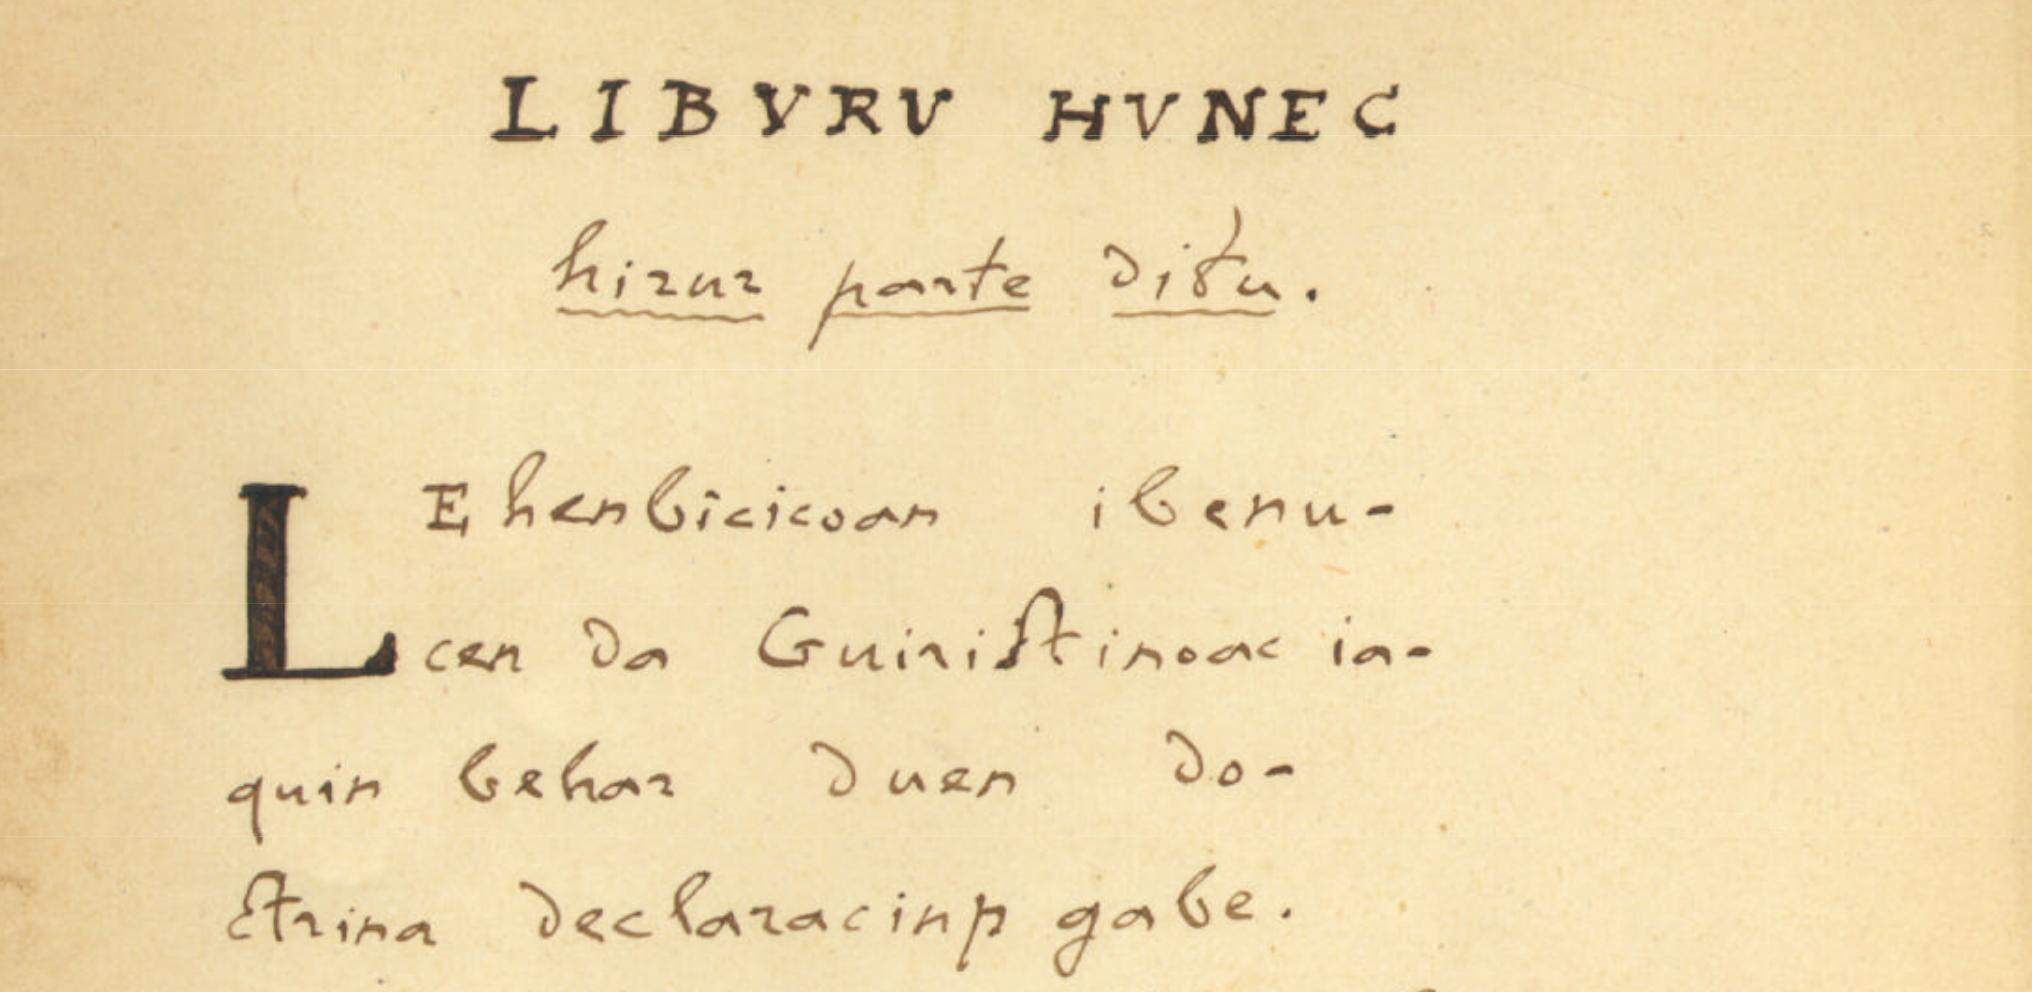 LIBVRV HVNEC
hirur parte ditu.
LEhenbicicoan ibenu-
cen da Guiristinoac ia-
quin behar duen do-
ctrina declaracinp gabe.